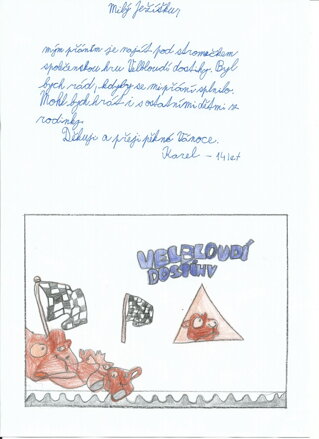 Milý Ježíšku,
mým přáním je najít pod stromečkem
společenskou hru Velbloudí dostihy. Byl
bych rád, kdyby se mi přání splnilo.
Mohl bych hrát i s ostatními dětmi z
rodinky.
Děkuji a přeji pěkné Vánoce.
Karel - 14 let
VELBLOUDÍ
DOSTIHY